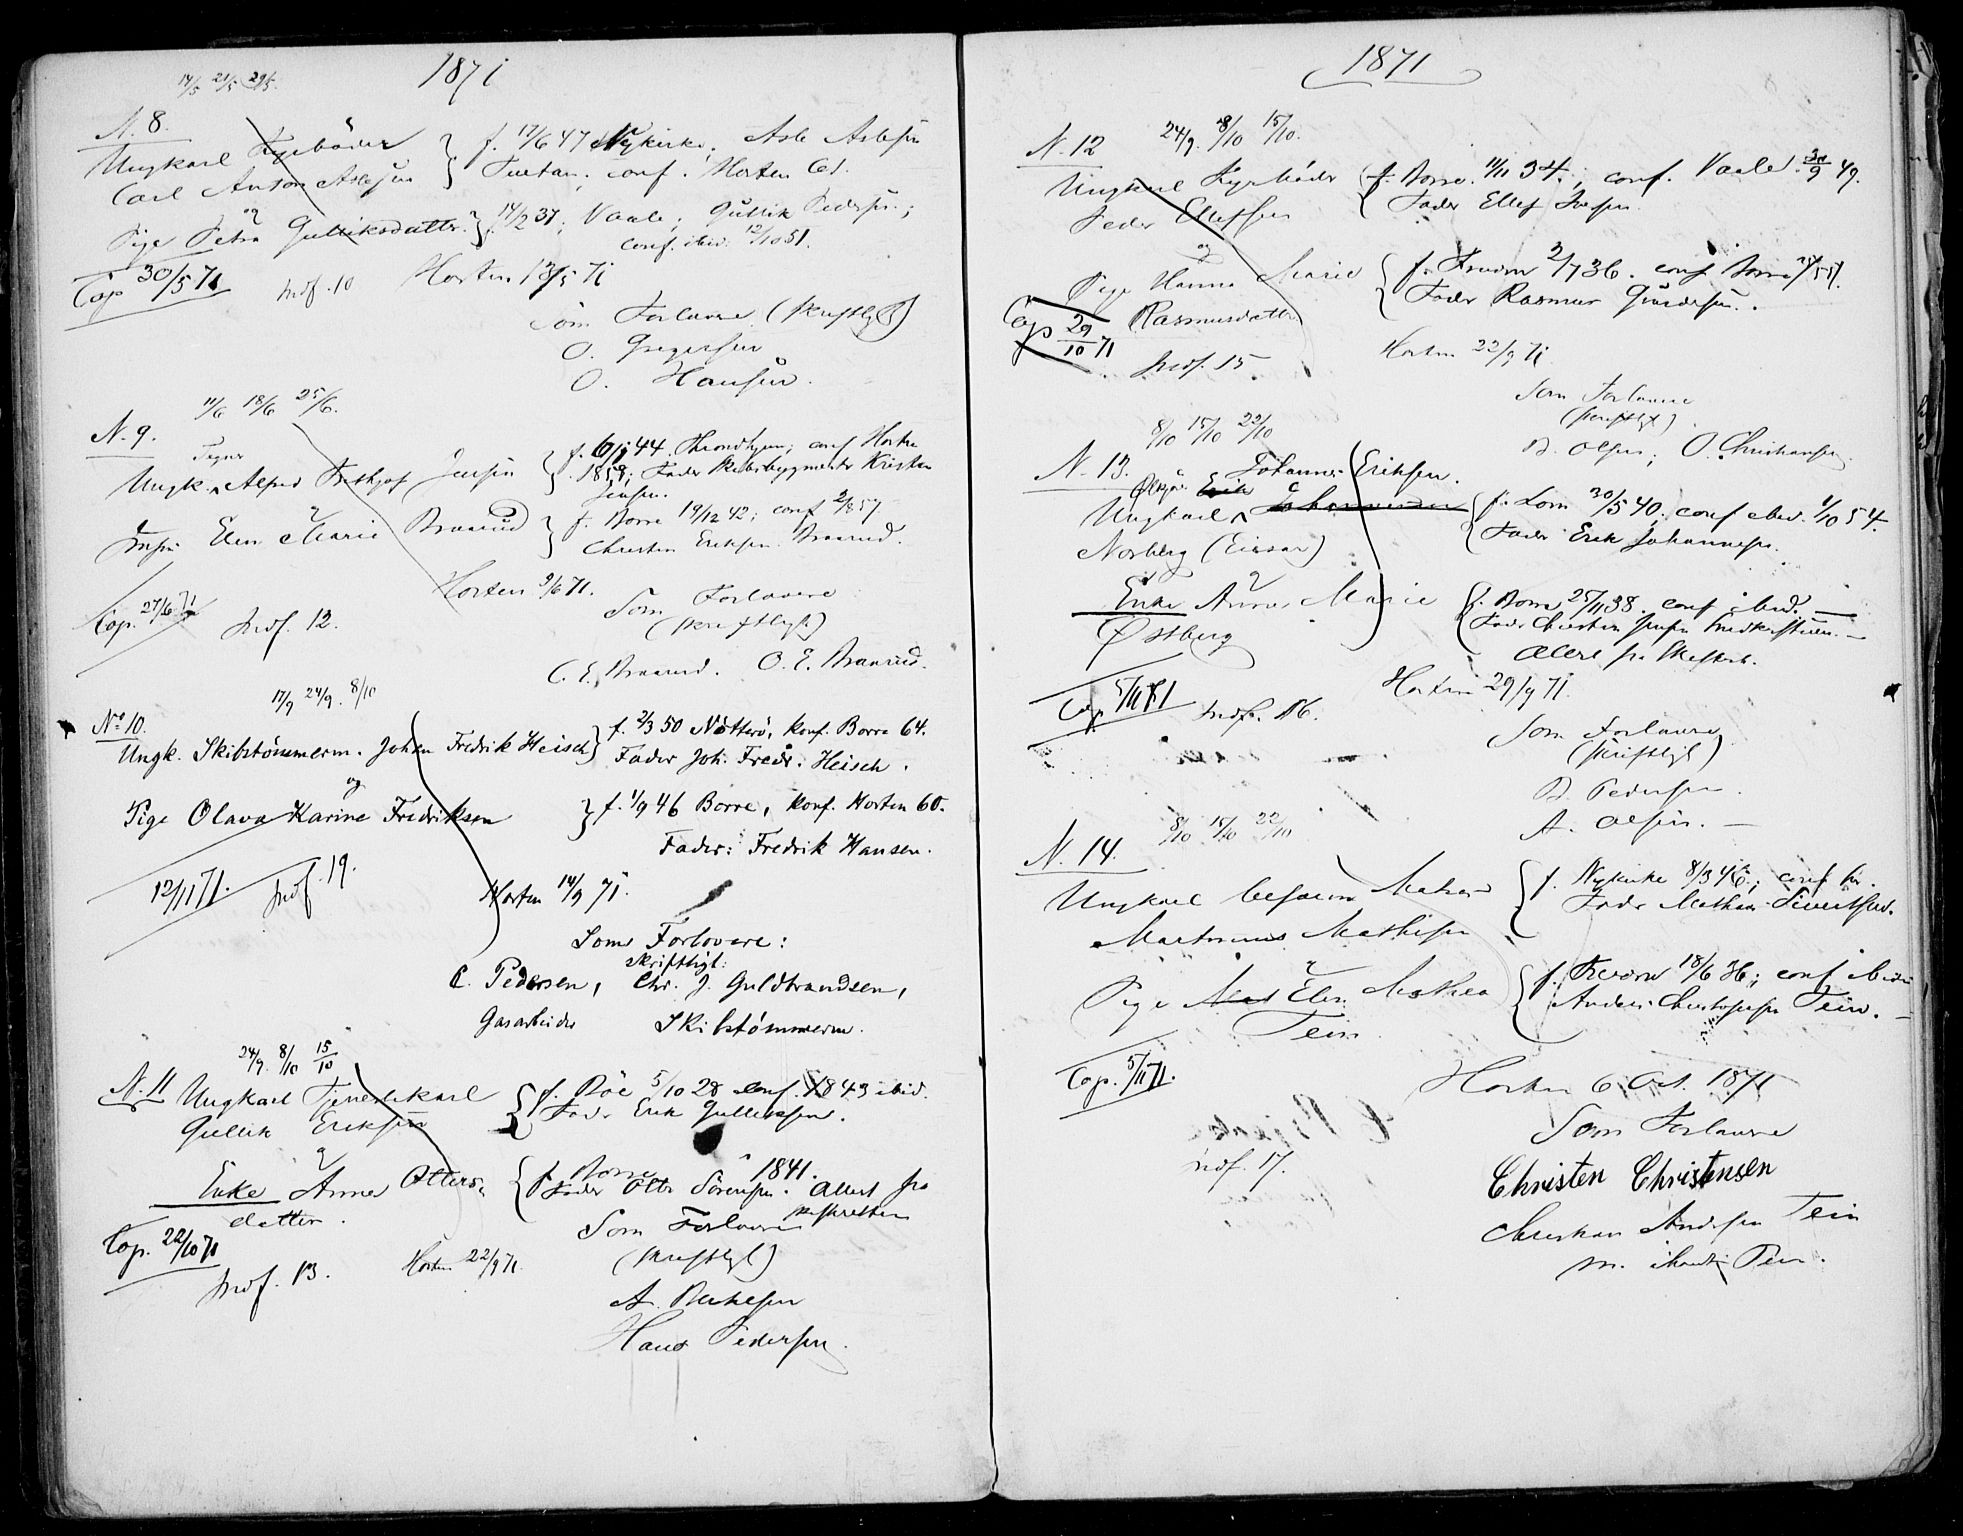 1871
14/5 21/5 29/5.
N. 8.
Ungkarl Fyrböder
Carl Anton Aslesen
og
Pige Petra Gulliksdatter.
f. 17/6 47 Nykirke; Asle Aslesen
conf. Horten
14/2 37; Vaale; Gullik Pedersen;
conf. ibid. 12/10 51.
Cop 30/5 71
Indf. 10
Horten 13/5 71
Som Forlovere (skriftligt)
O. Gregersen
O. Hansen.
11/6 18/6 25/6.
N. 9.
Ungk. Alfred Frithjof Jensen
f. 6/1 44. Throndhjem; conf Horten
1859; Fader Skibsbygmester Kristen
Jensen.
Elen Marie Braarud
f. Borre 19/12 42; conf 2/8 57
Christen Eriksen Braarud.
Cop. 27/6 71
Indf. 12.
Horten 9/6 71.
Som Forlovere
(skriftligt)
C. E. Braarud. O. E. Braarud.
17/9 24/9. 8/10
No 10.
Ungk. Skibstömmerm. Johan Fredrik Heisch
f. 2/3 50 Nötterö, konf. Borre 64.
Fader Joh. Fredr. Heisch.
og
Pige Olava Karine Fredriksen
f. 1/9 46 Borre, konf. Horten 60.
Fader: Fredrik Hansen.
12/11 71.
Indf. 19.
Horten 14/9 71.
Som Forlovere:
skriftligt:
C. Pedersen, Chr. J. Guldbrandsen,
Gasarbeider Skibstömmerm.
24/9. 8/10 15/10
N. 11 Ungkarl Tjenestekarl
Gullik Eriksen
f. Röe 5/10 28 conf. 1843 ibid.
Fader Erik Gulliksen.
Enke Anne Otters-
datter.
f. Borre 1841.
Fader Otter Sörensen. Attest fra
skifteretten
Cop. 22/10 71
Indf. 13.
Horten 22/9 71.
Som Forlovere
(skriftligt)
A. Berthesen
Hans Pedersen.
1871
24/9. 8/10 15/10.
N. 12
Ungkarl Fyrböder
Peder Ellefsen
f. Borre. 11/11 34.; conf. Vaale. 30/9 49.
Fader Ellef Iversen.
og
Pige Hanna Marie
Rasmusdatter
2/7 36. conf Borre
Fader Rasmus
Cop 29/10 71
Indf. 15
Horten 22/9 71.
Som Forlovere
(skriftligt)
B. Olsen; O. Christiansen.
8/10 15/10 22/10
N. 13.
Johannes Eriksen.
Ungkarl
Norberg (Eissar)
f. Lom 30/5 40; conf ibid. 1/10 54.
Fader Erik Johannesen.
Enke Anne Marie
Østberg
f. Borre 25/11 38. conf ibid.
Attest fra Skifteret.
Cop. 5/11 71
Indf. 16.
Horten 29/9 71.
Som Forlovere
(skriftligt)
B. Pedersen.
A. Olsen.
8/10 15/10 22/10
N. 14.
Ungkarl
Martinius Mathisen
f. Nykirke 8/3 46; conf
Fader Mathias Sivertsen.
Pige Elen Mathea
Tein.
18/6 36; conf ibid
Anders Christophersen Tein.
Cop. 5/11 71.
Indf. 17.
Horten 6 Oct. 1871
Som Forlovere
Christen Christensen
Christian Andersen Tein